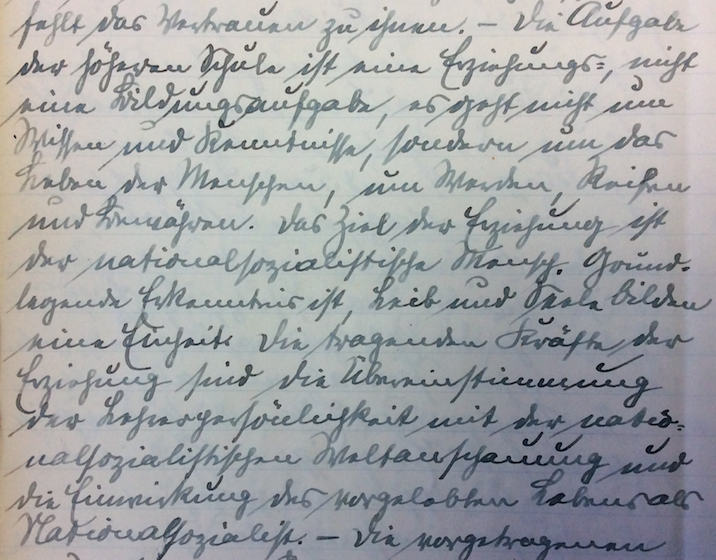 fehlt das Vertrauen zu ihnen. – Die Aufgabe
der höheren Schule ist eine Erziehungs=, nicht
eine Bildungsaufgabe, es geht nicht um
Wissen und Kenntnisse, sondern um das
Leben der Menschen, um Werden, Reifen
und Bewähren. Das Ziel der Erziehung ist
der nationalsozialistische Mensch. Grund-
legende Erkenntnis ist, Leib und Seele bilden
eine Einheit. Die tragenden Kräfte der
Erziehung sind die Übereinstimmung
der Lehrerpersönlichkeit mit der natio=
nalsozialistischen Weltanschauung und
die Einwirkung des vorgelebten Lebens als
Nationalsozialist. – Die vorgetragenen